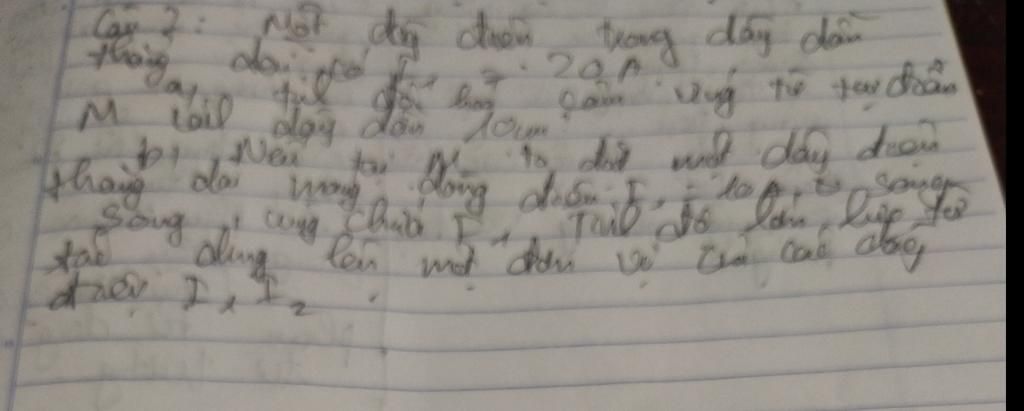 Câu 2: Một dg điện trong dây dẫn
thẳng dài có I₁ = 20A
a, Tính độ lớn cảm ứng từ tại điểm
M cách dây dẫn 10cm
b, Nếu tại M ta đặt một dây điện
thẳng dài mang dòng điện I₂ = 10A,
song, cùng chiều I₁, Tính độ lớn lực từ
tác dụng lên một đơn vị của các dòng
điện I₁ I₂.